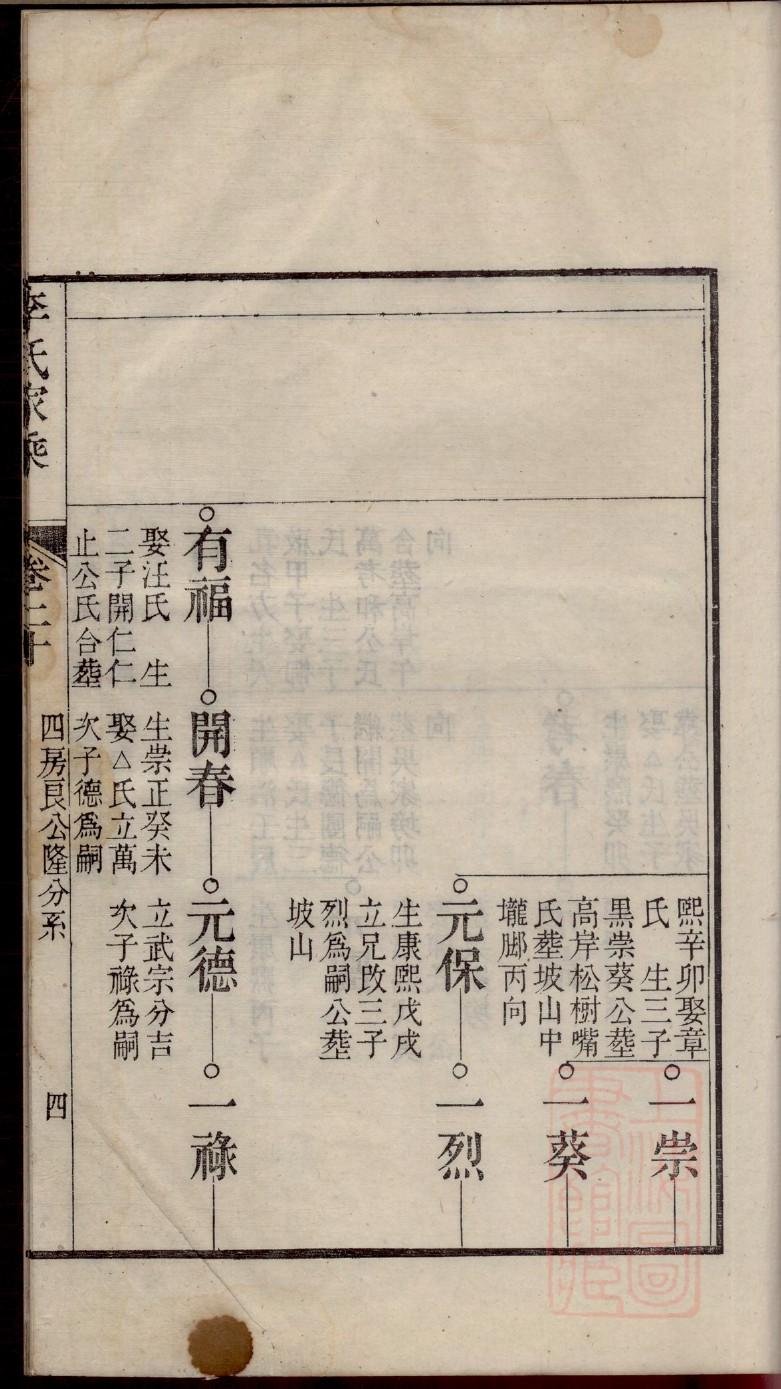 熙辛卯娶章
氏　生三子
黑崇葵公塟
高岸松樹嘴
氏塟坡山中
壠脚丙向
一崇
一葵
元保
生康熙戊戌
立兄改三子
烈爲嗣公塟
坡山
一烈
有福
娶汪氏　生
二子開仁仁
止公氏合塟
開春
生崇正癸未
娶△氏立萬
次子德爲嗣
元德
立武宗分吉
次子祿爲嗣
一祿
李氏家乘
卷二十
四房良公隆分系
四